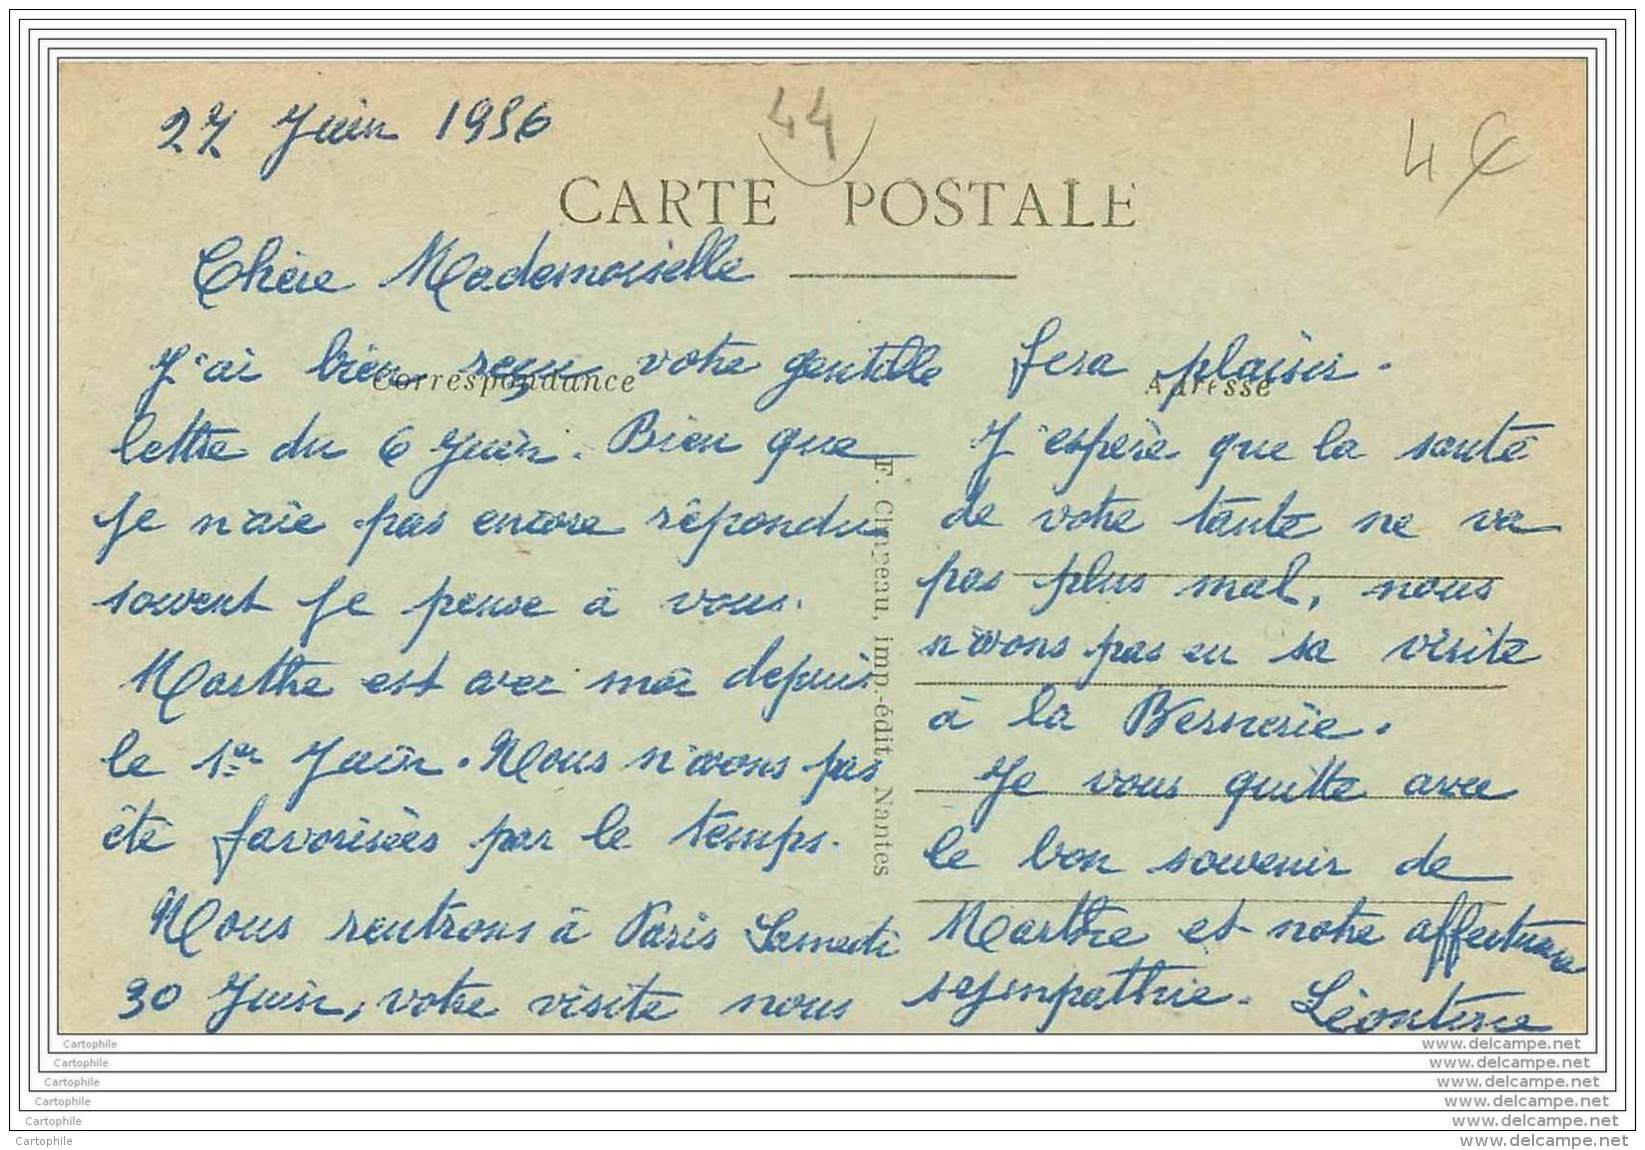 27 Juin 1956
44
4€
CARTE POSTALE
Chère Mademoiselle
Correspondance
J'ai bien reçu votre gentille
lettre du 6 Juin. Bien que
je n'aie pas encore répondu
souvent je pense à vous.
Marthe est avec moi depuis
le 1er Juin. Nous n'avons pas
été favorisées par le temps.
Nous rentrons à Paris Samedi
30 Juin, votre visite nous
F. Chapeau, imp.-édit. Nantes
Adresse
fera plaisir.
J'espère que la santé
de votre tante ne va
pas plus mal, nous
n'avons pas eu sa visite
à la Bernerie.
Je vous quitte avec
le bon souvenir de
Marthe et notre affectueuse
sympathie. Léontine
Cartophile
www.delcampe.net
Cartophile
www.delcampe.net
Cartophile
www.delcampe.net
Cartophile
www.delcampe.net
Cartophile
www.delcampe.net
Cartophile
www.delcampe.net